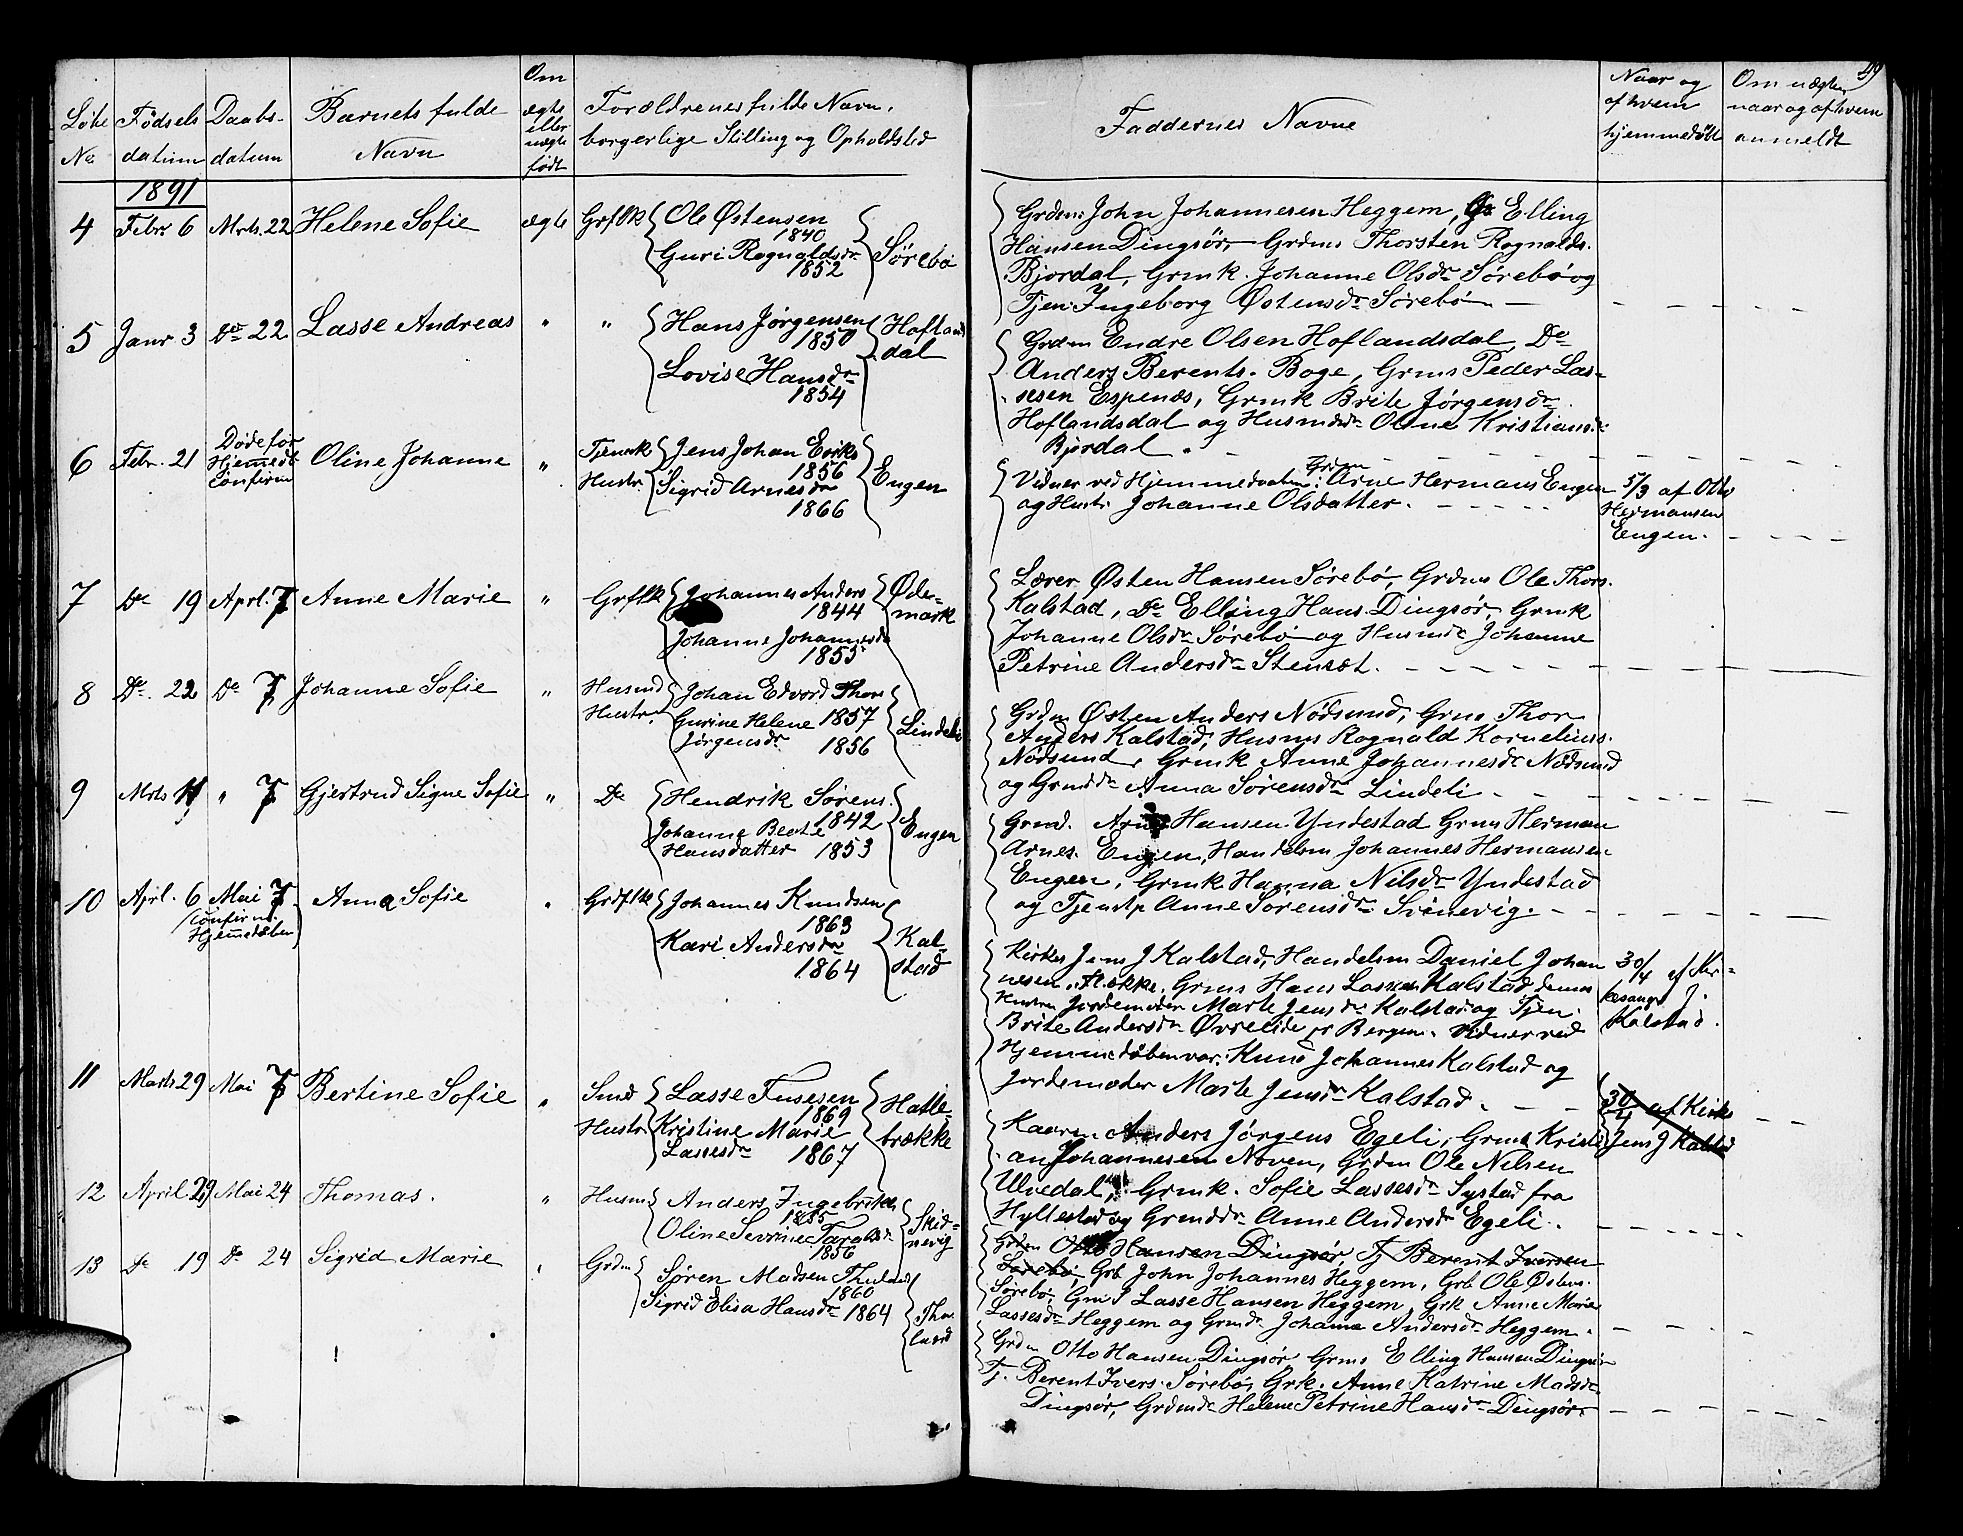 49
Løbe No. | Fødsels datum | Daabs- datum | Barnets fulde Navn | Om ægte eller uægte født | Forældrenes fulde Navn, borgerlige Stilling og Opholdsted | Faddernes Navne | Naar og af hvem hjemmedøbt | Om uægte, naar og af hvem anmeldt
1891
4 Febr 6 Mrts. 22 Helene Sofie ægte Grflk Ole Østensen
1840
Guri Rognaldsdr
1852
Sørebø
Grdm. John Johannesen Heggem, Elling
Hansen Dingsør, Grdms Thorsten Rognalds.
Bjordal, Grmk. Johanne Olsdr Sørebø og
Tjen. Ingeborg Østensdr Sørebø
5 Janr 3 Do 22 Lasse Andreas " " Hans Jørgensen
1850
Lovise Hansdr
1854
Hofland
dal
Grdm Endre Olsen Hoflandsdal, Do
Anders Berents. Boge, Grms Peder Las-
sesen Espenæs, Grmk Brite Jørgensdr
Hoflandsdal og Husmdr Oline Kristiansdr
Bjordal.
6 Febr. 21 Døde før
Hjemmedb
Confirm
Oline Johanne " Tjenrk
Hustr.
Jens Johan Eriks
1856
Sigrid Arnesdr
1866
Engen
Vidner ved Hjemmedaaben: Grdm Arne Hermans Engen
og Hustr. Johanne Olsdatter.
5/3 af Otto
Hermansen
Engen.
7 Do 19 Aprl. 7 Anne Marie " Grflk Johannes Anders
1844
Johanne Johannesdr
1855
Øde-
mark
Lærer Østen Hansen Sørebø, Grdms Ole Thors.
Kalstad, Do Elling Hans. Dingsør, Grmk
Johanne Olsdr Sørebø og Husmdr Johanne
Petrine Andersdr Stensæt.
8 Do 22 Do 7 Johanne Sofie " Husmd
Hustr.
Johan Edvard Thors
Gurine Helene 1857
Jørgensdr 1856
Lindeli
Grdm Østen Anders Nødsund, Grms Thor
Anders Kalstad, Husms Rognald Kornelius.
Nødsund, Grmk Anne Johannesdr Nødsund
og Grmddr Anna Sørensdr Lindeli
9 Mrts 11 " 7 Gjertrud Signe Sofie " Do Hendrik Sørens.
1842
Johanne Beate
Hansdatter 1853
Engen
Grmd. Arne Hansen Yndestad Grms Herman
Arnes. Engen, Handelsm Johannes Hermansen
Engen, Grmk Hanna Nilsdr Yndestad
og Tjenstp Anne Sørensdr Svinevig.
10 Aprl. 6 Mai 7
(Confirm.
Hjemmedøben)
Anna Sofie " Grdflk Johannes Knudsen
1863
Kari Andersdr
1864
Kal-
stad
Kirkes. Jens J Kalstad, Handelsm Daniel Johan
nesen Flekke, Grms Hans Lassesen Kalstad dennes
Hustru Jordemoder Marte Jensdr Kalstad og Tjen.
Brite Andersdr Øvrelide pr Bergen. Vidner ved
Hjemmedøben var: Knud Johannes Kalstad og
Jordemoder Marte Jensdr Kalstad.
30/4 af Kir-
kesanger J.
Kalstad.
11 Marts 29 Mai 7 Bertine Sofie " Smed
Hustr.
Lasse Tusesen
1869
Kristine Marie
Lassesdr 1867
Hatle-
brække
30/4 af Kirks
Jens J Kalstad
Kaarm. Anders Jørgens Egeli, Grms Kristi
an Johannesen Noven, Grdm Ole Nilsen
Ulvedal, Grmk. Sofie Lassesdr Systad fra
Hyllestad og Grmddr Anne Andersdr Egeli.
12 April 29 Mai 24 Thomas. " Husm Anders Ingebrikts
1855
Oline Sevrine Taraldsdr
1856
Skid-
nevig
Grdm Otto Hansen Dingsør, Tj Berent Iversen
Sørebø, Grb John Johannes Heggem, Grb Ole Østens.
Sørebø, Grms Lasse Hansen Heggem, Grk Anne Marie
Lassesdr Heggem og Grmdr Johanne Andersdr Heggem.
13 Do 19 Do 24 Sigrid Marie " Grdm Søren Madsen Thuland
1860
Sigrid Elisa Hansdr 1864
Thu
land
Grdm Otto Hansen Dingsør, Grms Elling Hansen Dingsør
Tj. Berent Ivers. Sørebø, Grk. Anne Katrine Madsdr
Dingsør, Grdmdr Helene Petrine Hansdr Dingsør.